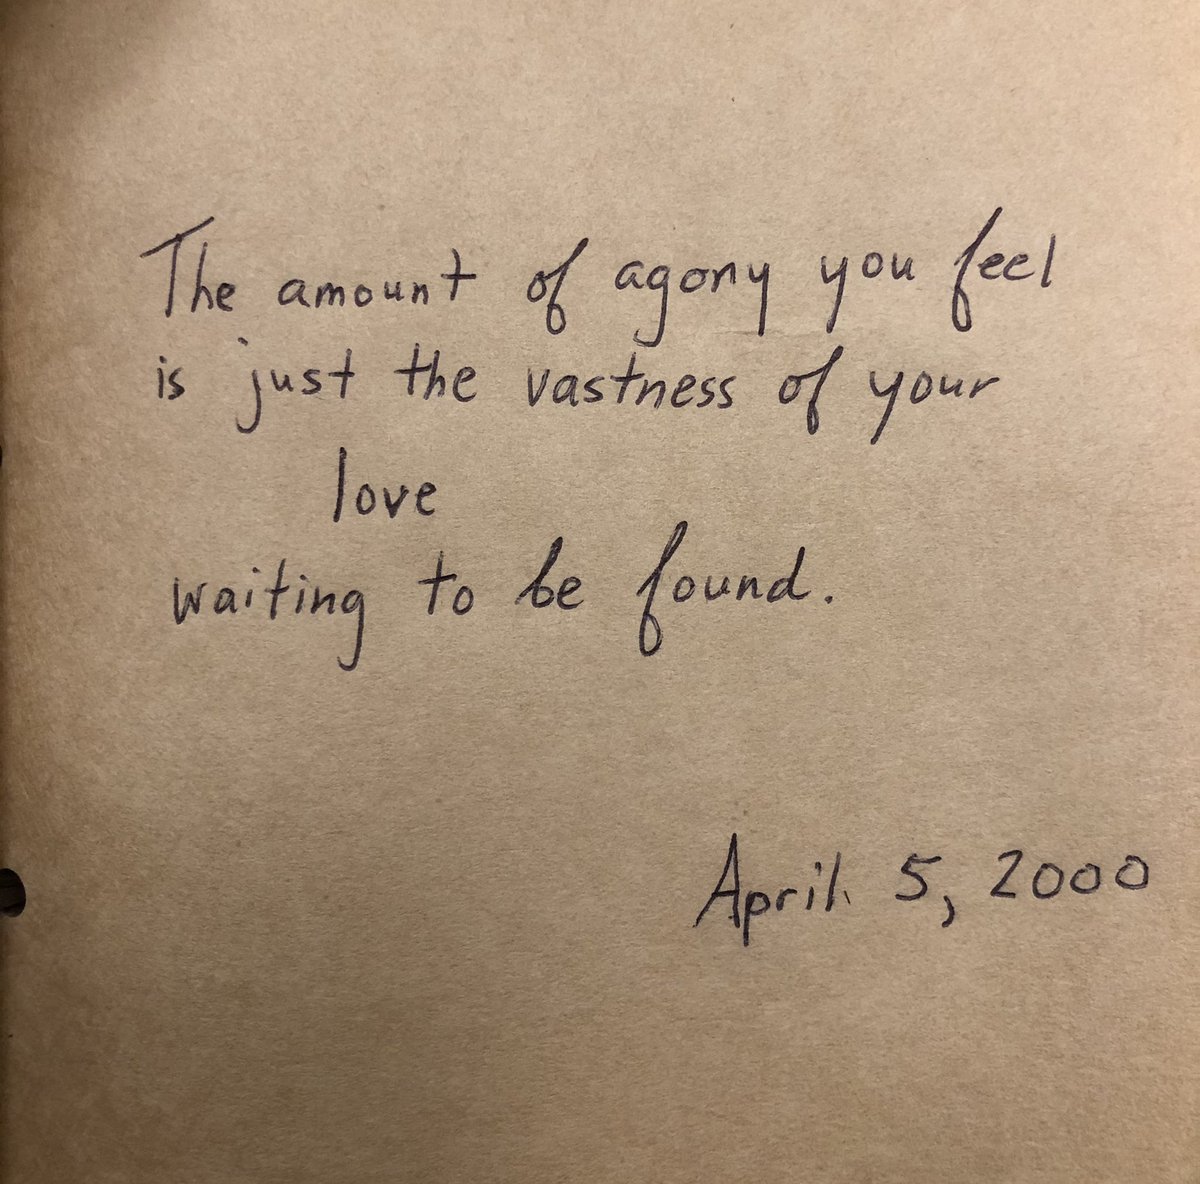 The amount of agony you feel
is just the vastness of your
love
waiting to be found.
April 5, 2000